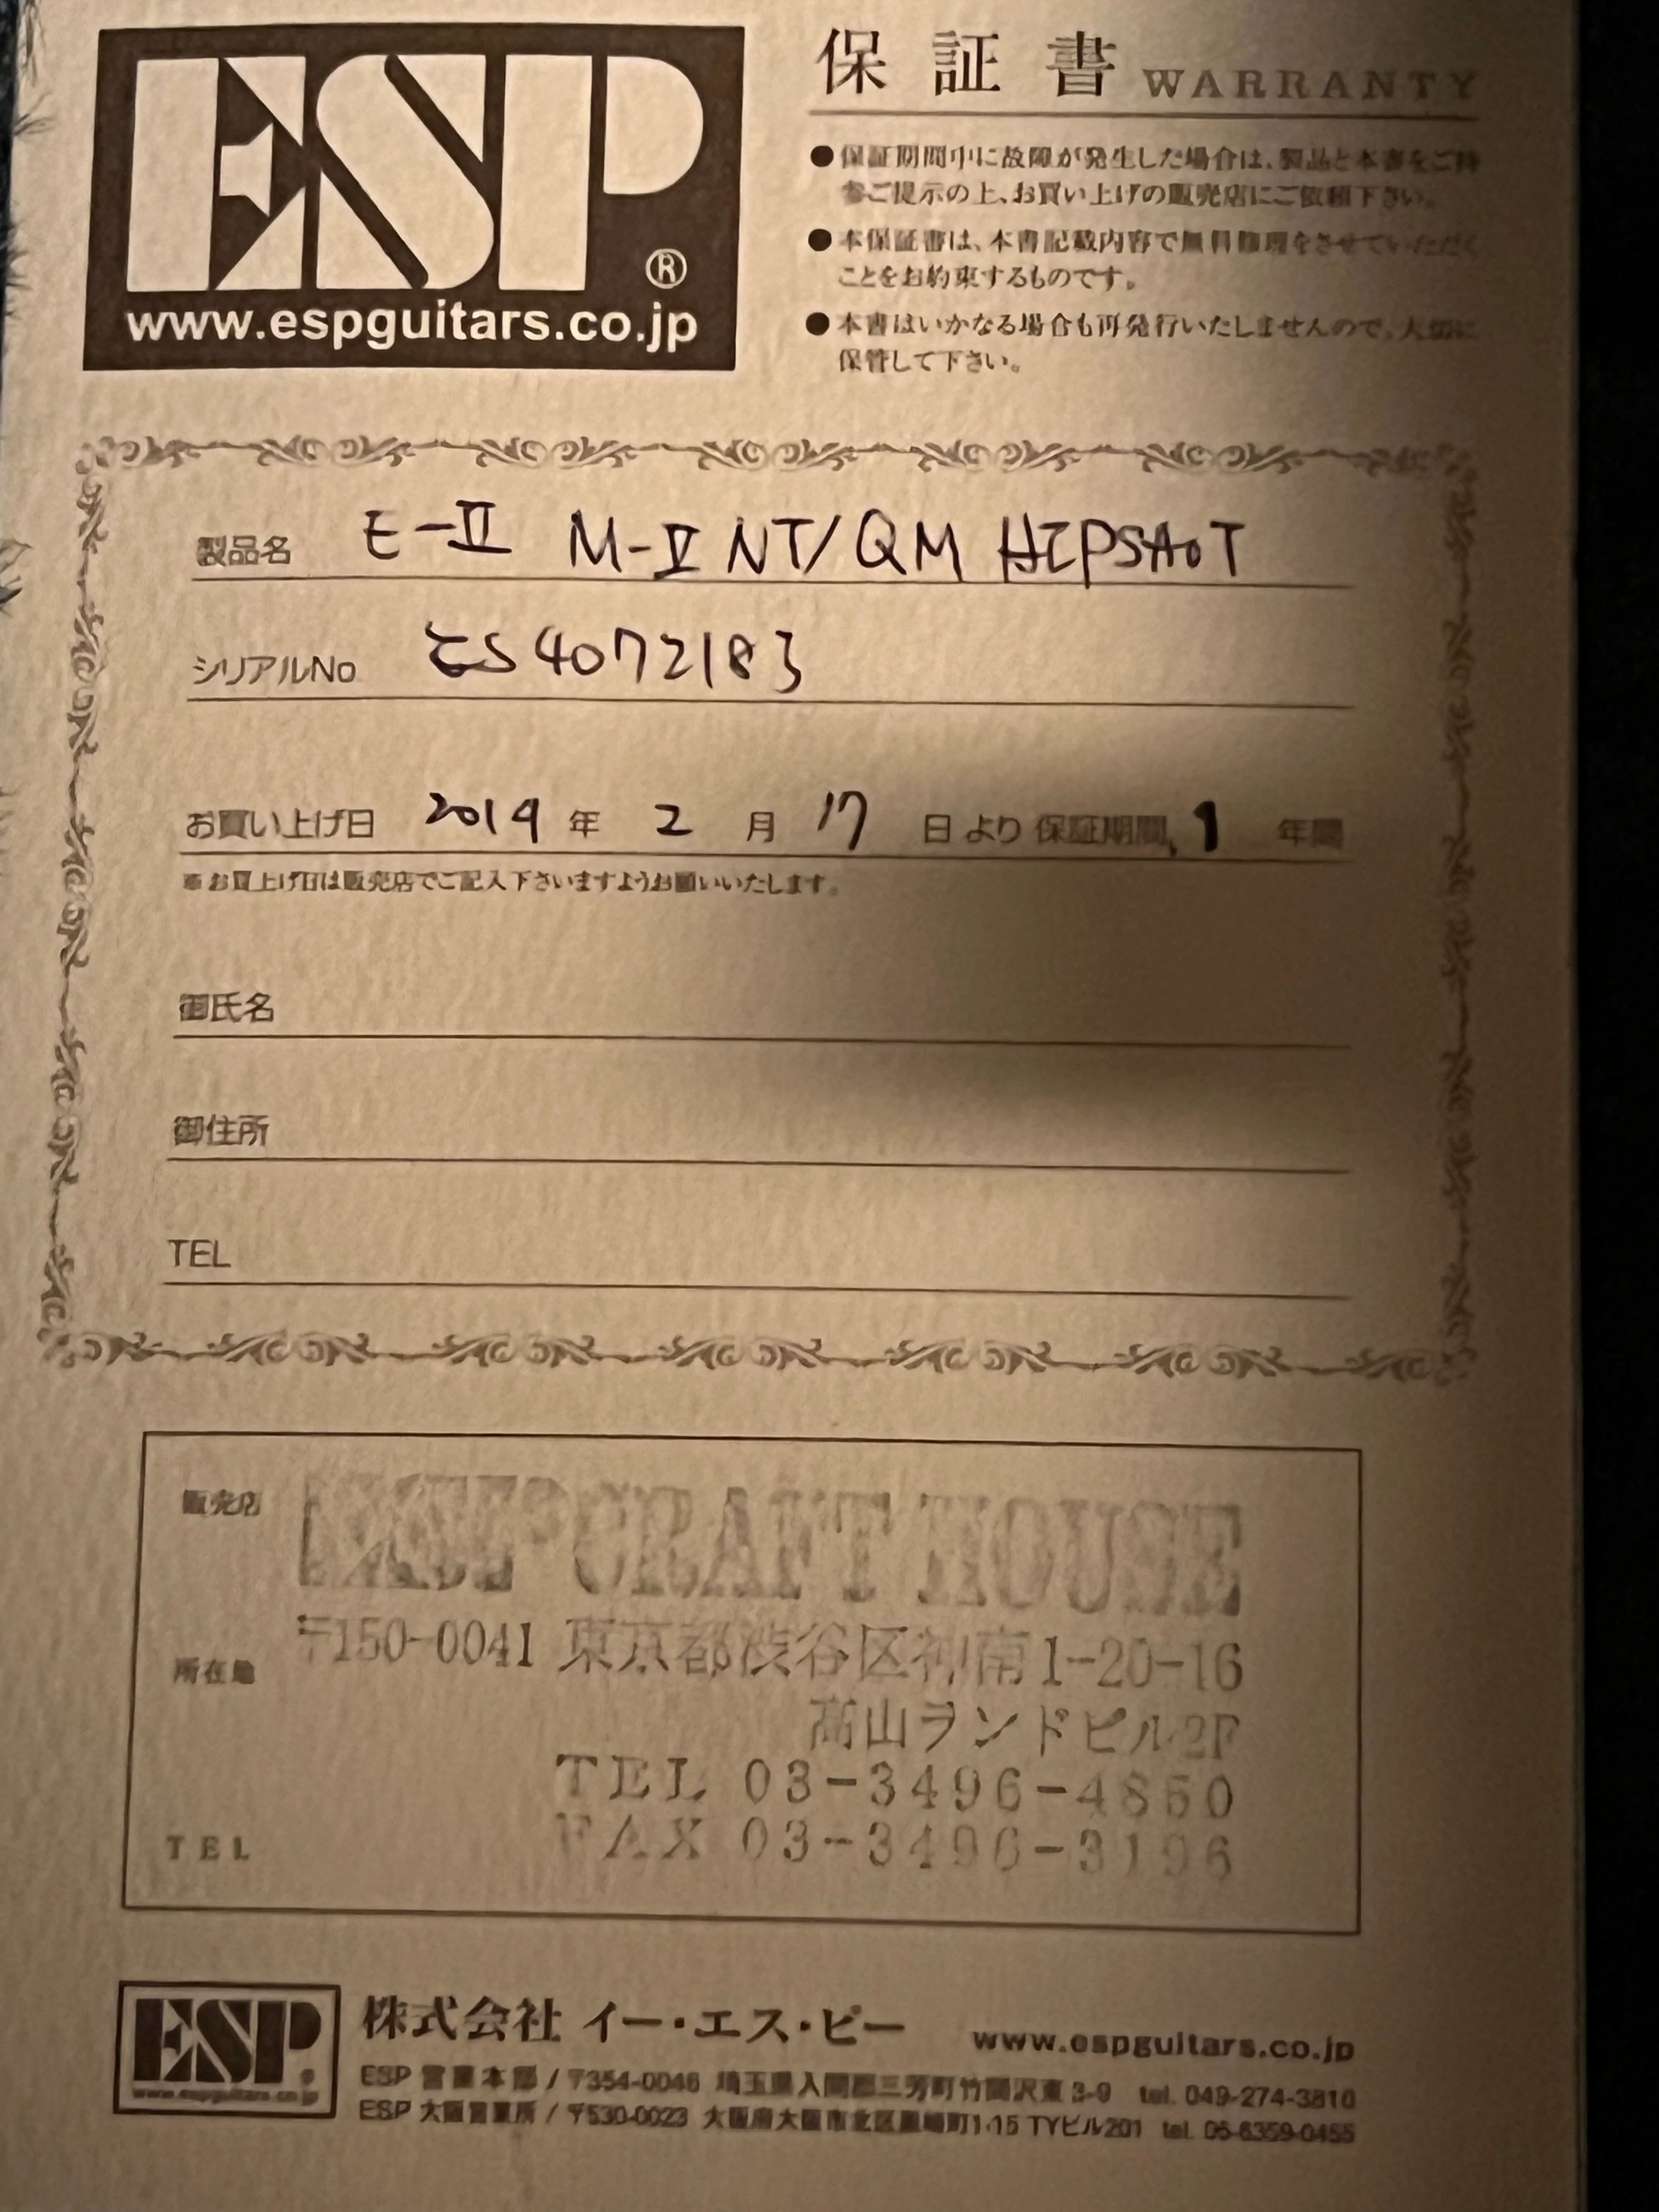 ESP®
www.espguitars.co.jp
保証書 WARRANTY
●保証期間中に故障が発生した場合は、製品と本書をご持
参ご提示の上、お買い上げの販売店にご依頼下さい。
●本保証書は、本書記載内容で無料修理をさせていただく
ことをお約束するものです。
●本書はいかなる場合も再発行いたしませんので、大切に
保管して下さい。
製品名 E-II M-II NT/QM HIPSHOT
シリアルNo ES4072183
お買い上げ日 2019 年 2 月 17 日より 保証期間 1 年間
※お買上げ日は販売店でご記入下さいますようお願いいたします。
御氏名
御住所
TEL
販売店 ESP CRAFT HOUSE
所在地 〒150-0041 東京都渋谷区神南1-20-16
高山ランドビル2F
TEL 03-3496-4850
FAX 03-3496-3196
TEL
ESP 株式会社 イー・エス・ピー www.espguitars.co.jp
www.espguitars.co.jp
ESP 営業本部 / 〒354-0046 埼玉県入間郡三芳町竹間沢東3-9 tel. 049-274-3810
ESP 大阪営業所 / 〒530-0023 大阪府大阪市北区黒崎町1-15 TYビル201 tel. 06-6359-0455